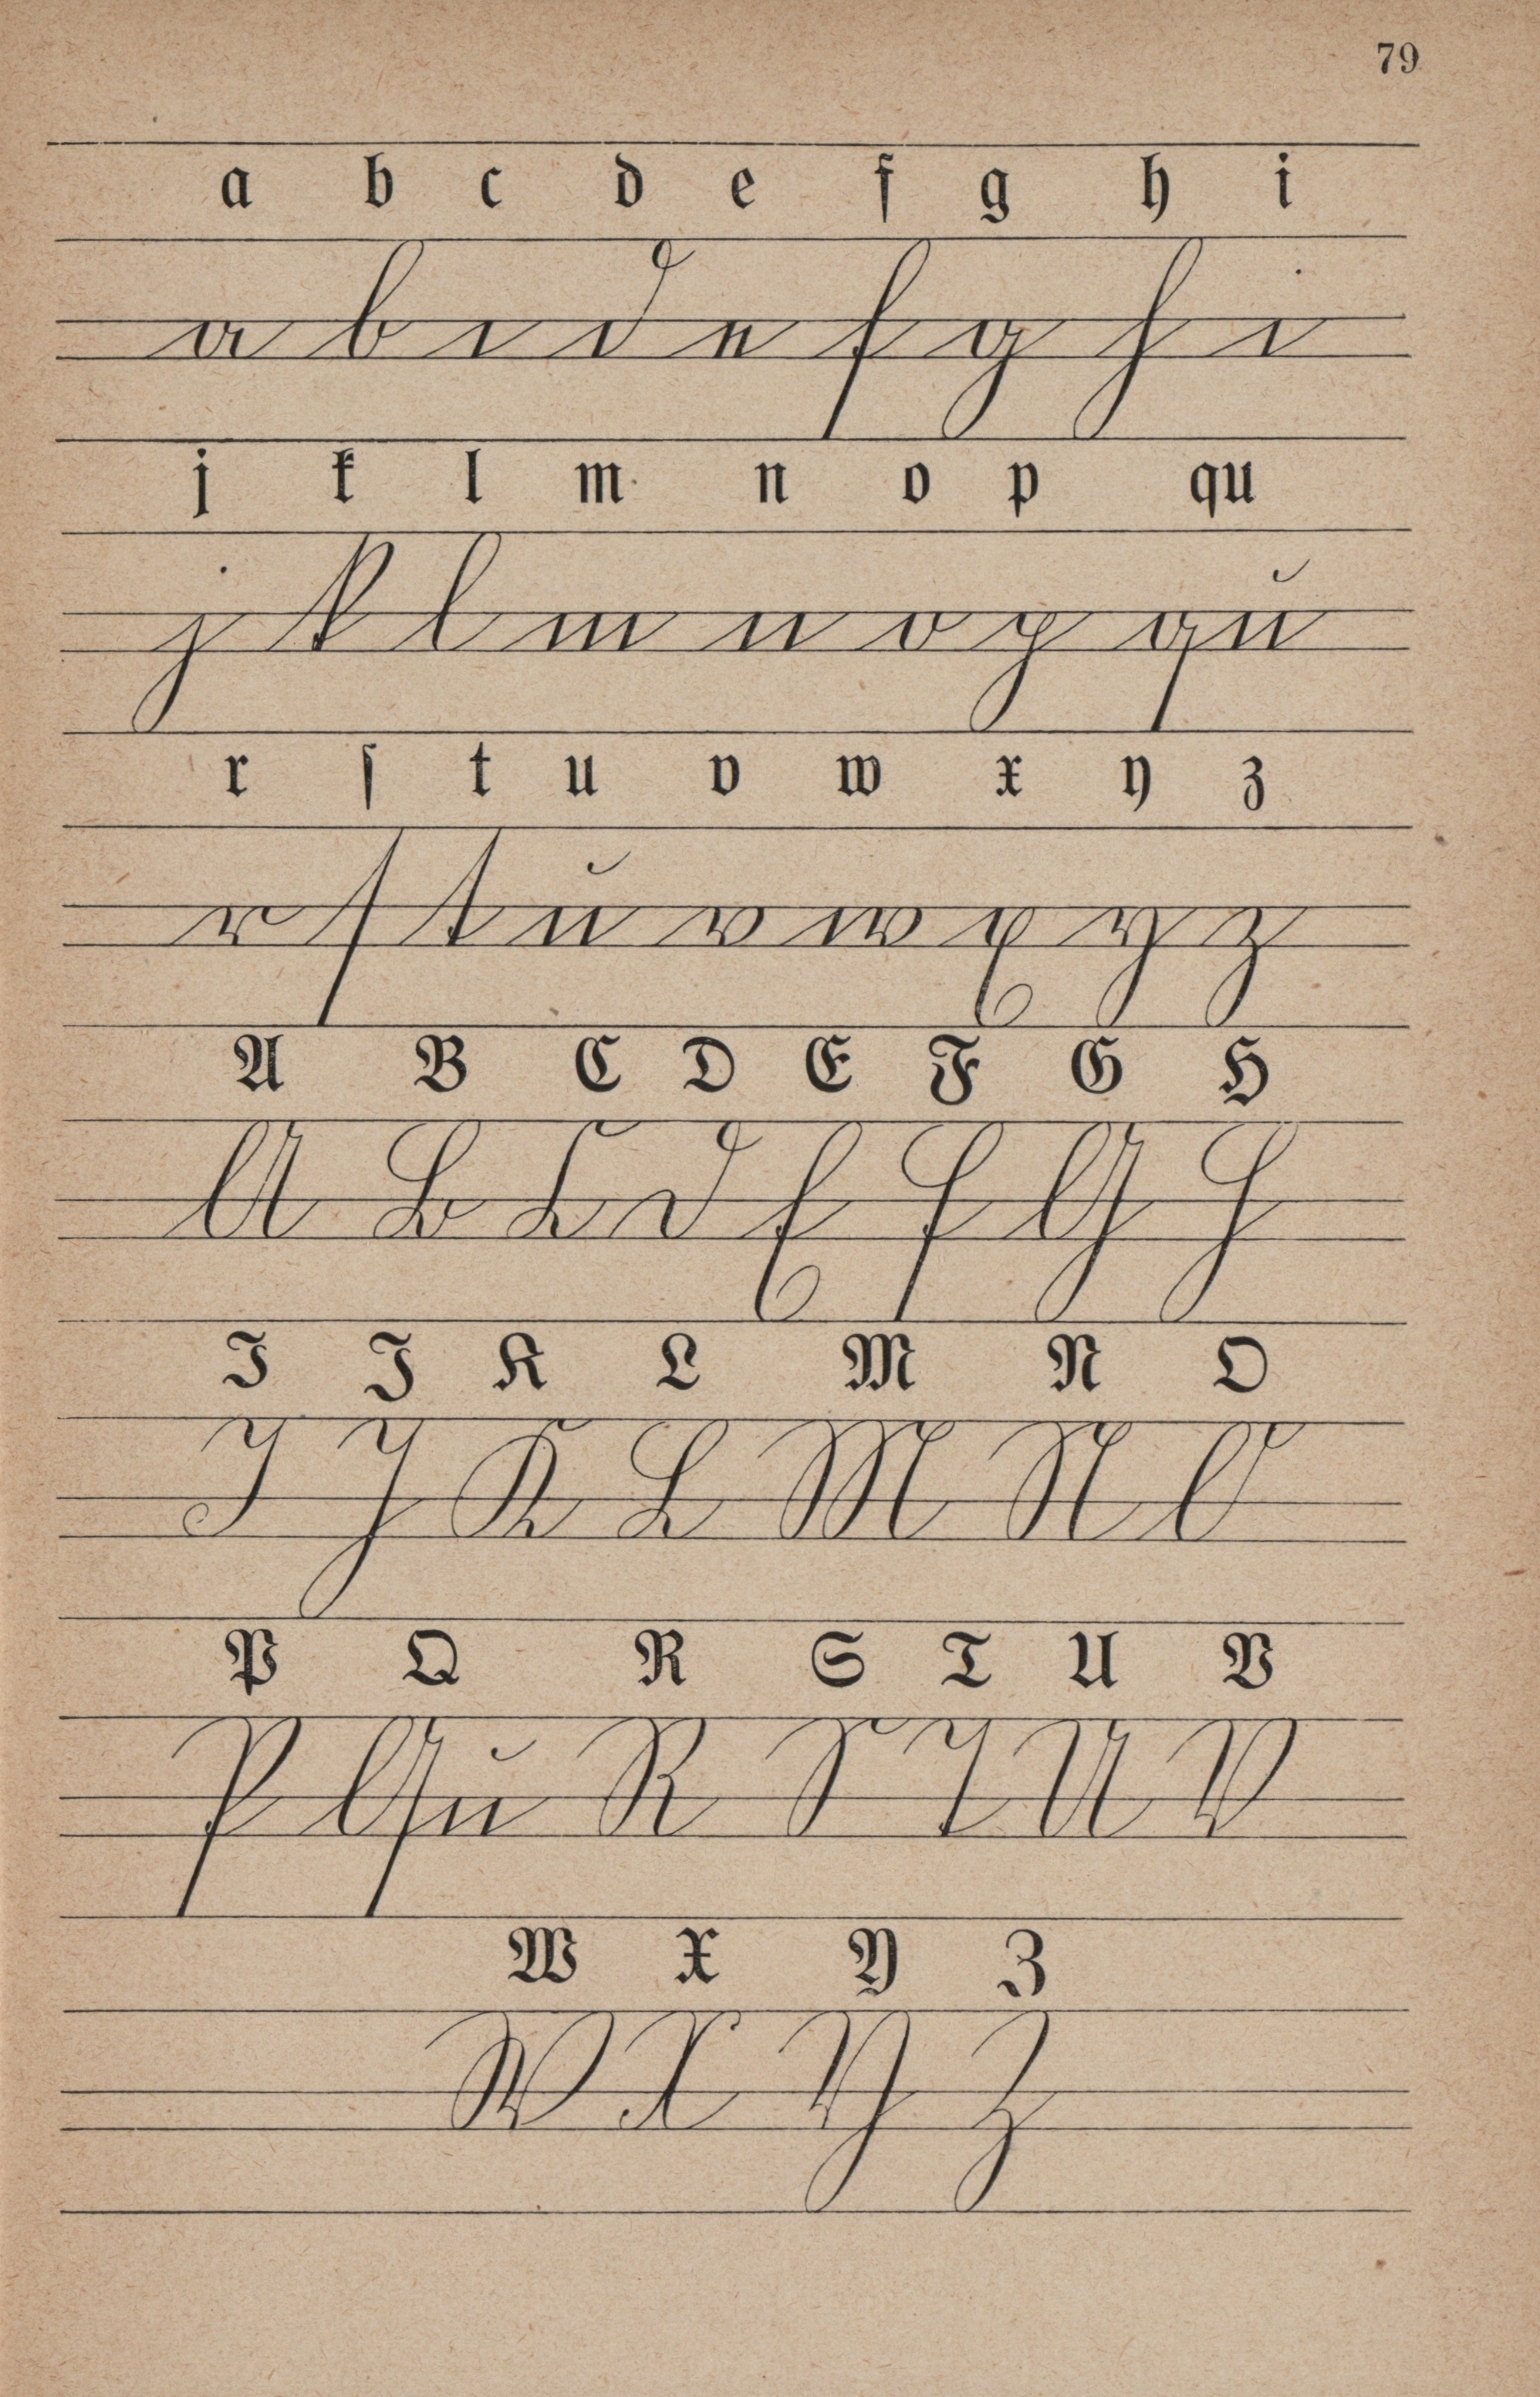 79
a b c d e f g h i
a b c d e f g h i
j k l m n o p qu
j k l m n o p qu
r ſ t u v w x y z
r ſ t u v w x y z
A B C D E F G H
A B C D E F G H
I J K L M N O
I J K L M N O
P Q R S T U V
P Qu R S T U V
W X Y Z
W X Y Z